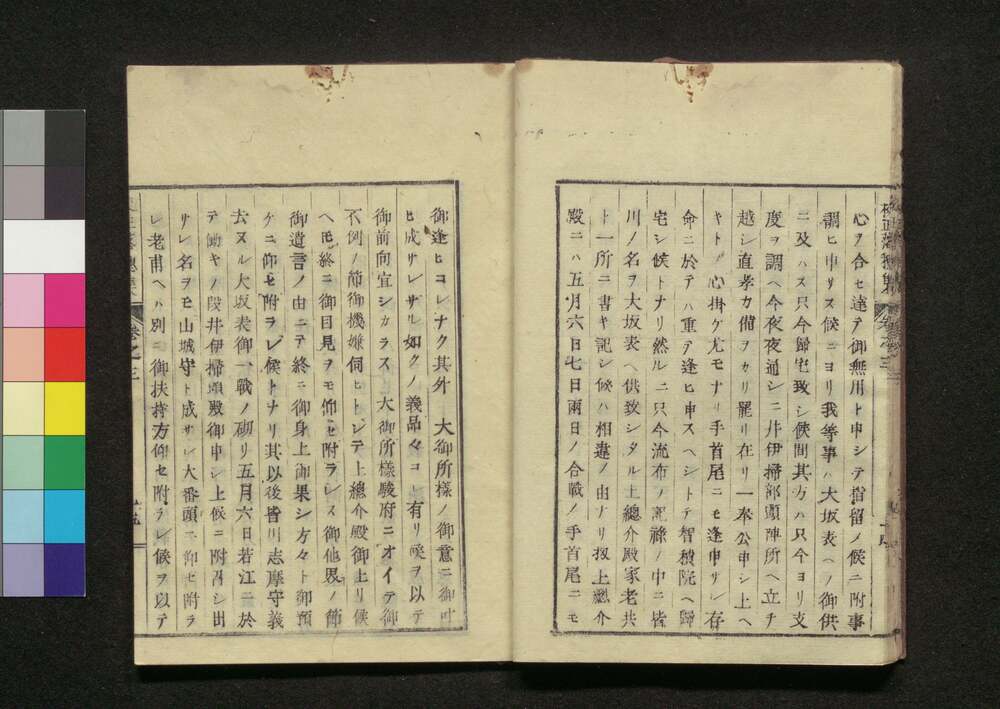 心ヲ合セ達テ御無用ト申シテ指留ノ候ニ附事
調ヒ申サス候ニヨリ我等事ハ大坂表ヘノ御供
ニ及ハス只今歸宅致シ候間其方ハ只今ヨリ支
度ヲ調ヘ今夜夜通シニ井伊掃部頭陣所ヘ立チ
越シ直孝カ備ヲカリ罷リ在リ一本公申シ上ヘ
キトノ心掛ケ尤モナリ手首尾ニモ逢申サレ存
命ニ於テハ重テ逢ヒ申スヘシトテ智積院ヘ歸
宅シ候トナリ然ルニ只今流布ノ記祿ノ中ニ皆
川ノ名ヲ大坂表ヘ供致シタル上總介殿家老共
ト一所ニ書キ記シ候ハ相違ノ由ナリ扨上總介
殿ニハ五月六日七日兩日ノ合戰ノ手首尾ニモ
御逢ヒコレナク其外 大御所樣ノ御意ニ御叶
ヒ成サレサル如クノ義品々コレ有リ候ヲ以テ
御前向宜シカラス 大御所樣駿府ニオイテ御
不例ノ節御機嫌伺ヒトシテ上總介殿御上リ候
ヘモ終ニ御目見ヲモ仰セ附ラレス御他界ノ節
御遺言ノ由ニテ終ニ御身上御果シ方々ト御預
ケニ仰セ附ラレ候トナリ其以後皆川志摩守義
去ヌル大坂表御一戰ノ砌リ五月六日若江ニ於
テ働キノ段井伊掃部頭殿御申シ上候ニ附召シ出
サレ名ヲモ山城守ト成サレ大番頭ニ仰セ附ラ
レ老甫ヘハ別ニ御扶持方仰セ附ラレ候ヲ以テ